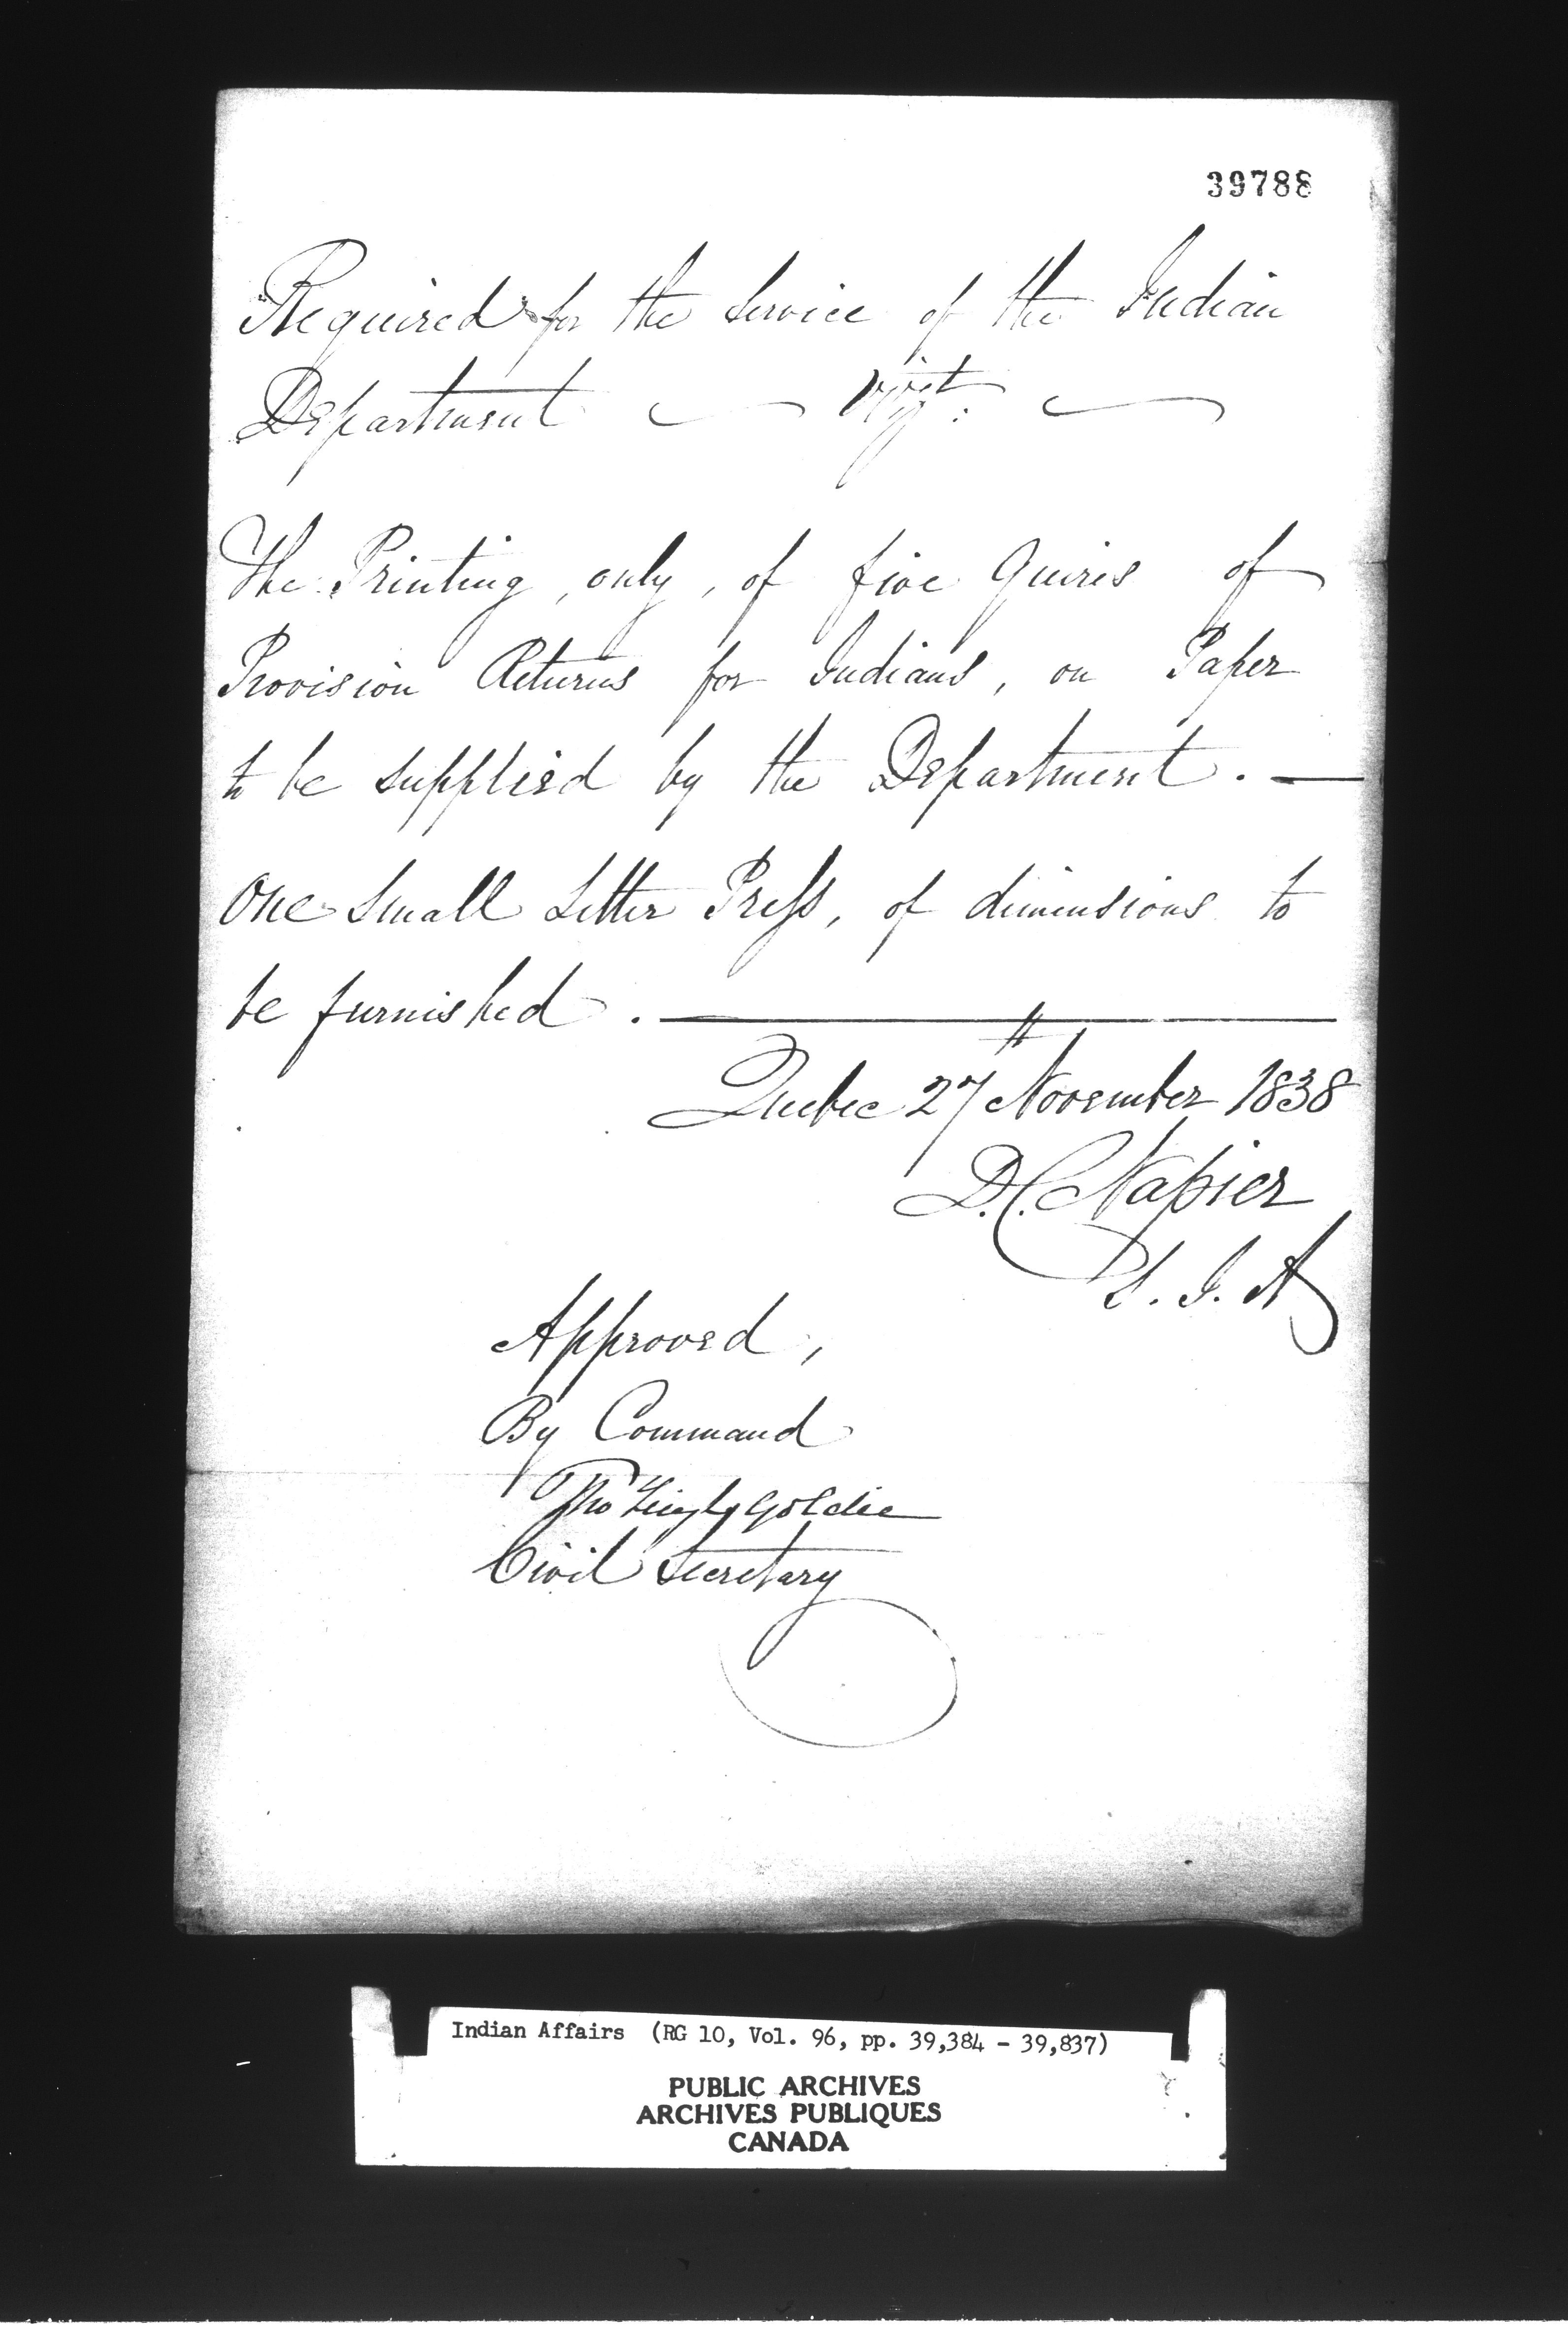 39788
Required for the Service of the Indian
Department — Vizt: —
The Printing, only, of five Quires of
Provision Returns for Indians, on Paper
to be supplied by the Department. —
One Small Letter Press, of dimensions to
be furnished. —
Quebec 27th November 1838
D.C. Napier
S. I. A
Approved,
By Command
Tho Leigh Goldie
Civil Secretary
Indian Affairs (RG 10, Vol. 96, pp. 39,384 - 39,837)
PUBLIC ARCHIVES
ARCHIVES PUBLIQUES
CANADA